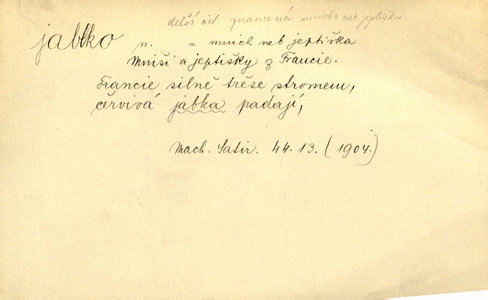 delší cit. znamená mnicha neb jeptišku
jablko n. = mnich neb jeptiška
Mniši a jeptišky z Francie.
Francie silně třese stromem,
červivá jabka padají,
Mach. Satir. 44. 13. (1904.)